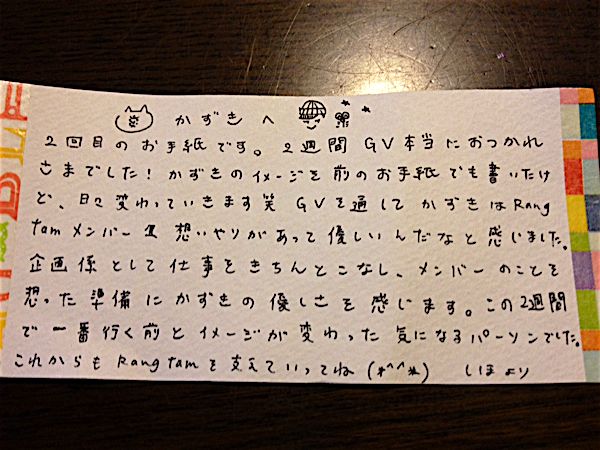 かずきへ
2回目のお手紙です。2週間 GV本当におつかれ
さまでした！かずきのイメージを前のお手紙でも書いたけ
ど、日々変わっていきます笑 GVを通してかずきはRang
tamメンバー1 想いやりがあって優しいんだなと感じました。
企画係として仕事をきちんとこなし、メンバーのことを
想った準備にかずきの優しさを感じます。この2週間
で一番行く前とイメージが変わった気になるパーソンでした。
これからもRangtamを支えていってね(*^^*) しほより